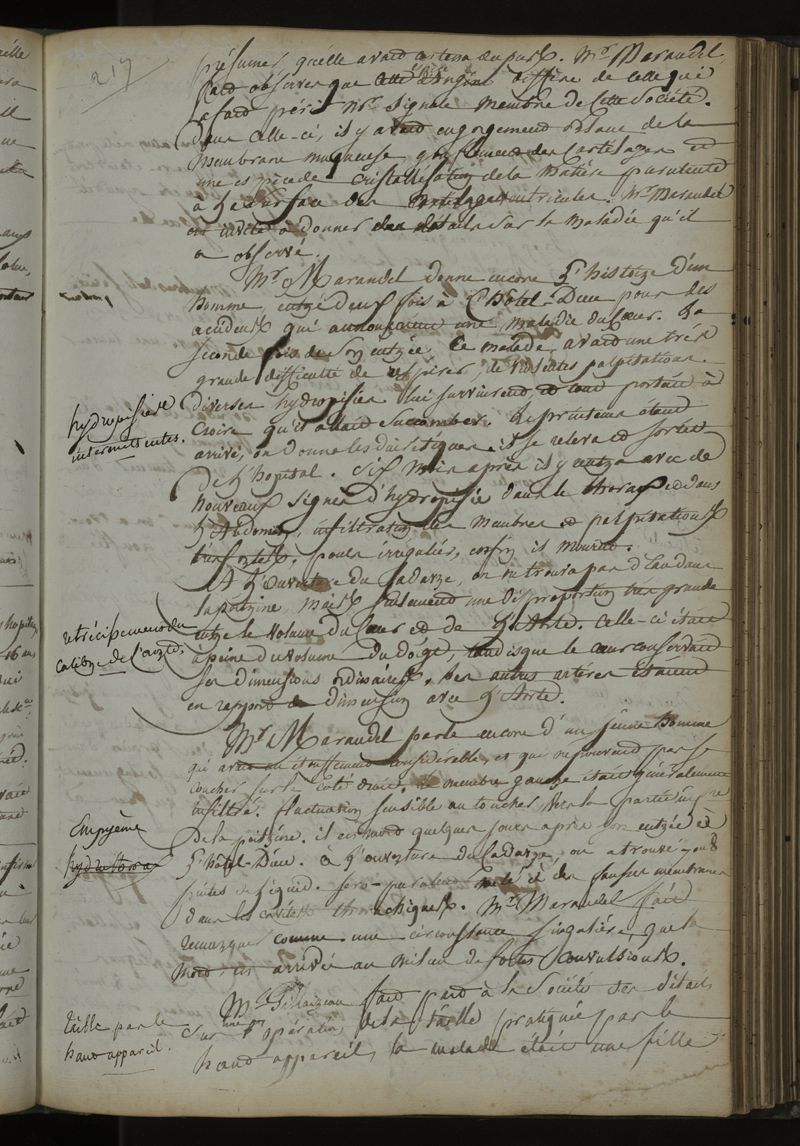 217
présumer qu'elle avait contenu du pus. Mr. Marandel
fait observer que cette angine diffère de celle qui
a fait périr Mr. Signale membre de cette Société.
Dans celle-ci, il y avait engorgement de la
membrane muqueuse, gonflement des cartilages et
une espèce de cristallisation de la matière purulente
à la surface des ventricules. Mr. Marandel
est invité à donner des détails sur la maladie qu'il
a observé.
Mr. Marandel donne encore l'histoire d'un
homme entré deux fois à l'hôtel-Dieu pour des
accidens qui annonçaient une maladie du cœur. La
seconde fois de son entrée, ce malade avait une très
grande difficulté de respirer, de violentes palpitations.
diverses hydropisies lui survinrent, et tout portait à
croire qu'il allait succomber. Le printems étant
arrivé, on donna les diurétiques, il se releva et sortit
de l'hopital. Six mois après il y entra avec de
nouveaux signes d'hydropisie dans le thorax et dans
l'abdomen, infiltration des membres et palpitations
très fortes, pouls irrégulier, enfin il mourut.
A l'ouverture du cadavre, on ne trouva pas d'eau dans
la poitrine, mais seulement une disproportion très grande
entre le volume du cœur et de l'aorte. Celle-ci était
à peine du volume du doigt, tandis que le cœur conservait
ses dimensions ordinaires. Les autres artères étaient
en rapport de dimension avec l'aorte.
Mr. Marandel parle encore d'un jeune homme
qui avait un étouffement considérable, et qui ne pouvait pas se
coucher sur le côté droit. le membre gauche était généralement
infiltré. fluctuation sensible au toucher vers la partie
de la poitrine. il est mort quelques jours après son entrée à
l'hôtel-Dieu. à l'ouverture du cadavre, on a trouvé 7 ou 8
pintes de liquide séro-purulent mêlé et des fausses membranes
dans les cavités thorachiques. Mr. Marandel fait
remarquer comme une circonstance singulière que la
mort est arrivée au milieu de fortes convulsions.
fait part à la Société des détails
sur une opération de la taille pratiquée par le
haut appareil, la malade était une fille
hydropisies
intermittentes.
rétrécissement du
calibre de l'aorte.
Empyème
hydrothorax
taille par le
haut appareil.